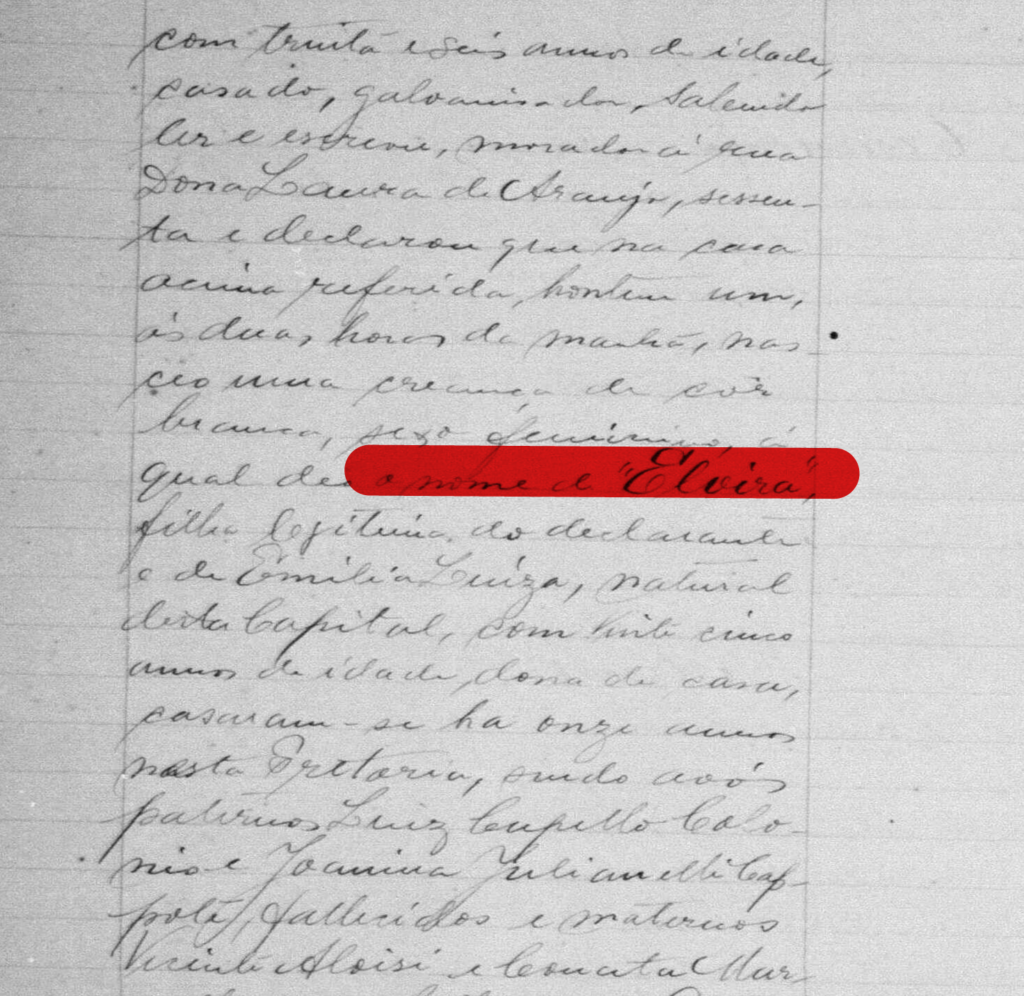 com trinta e seis annos de idade,
casado, galvanisador, sabendo
ler e escrever, morador á rua
Dona Laura de Araujo, sessen-
ta e declarou que na casa
acima referida, hontem um,
ás duas horas da manhã, nas-
ceo uma creança de côr
branca, sexo feminino, á
qual deu o nome de "Elvira",
filha legitima do declarante
e de Emilia Luiza, natural
desta Capital, com vinte cinco
annos de idade, dona de casa,
casaram-se ha onze annos
nesta Pretoria, sendo avós
paternos Luiz Cupello Colo-
nio e Joanina Julianelli Cap-
pote, fallecidos e maternos
Vicente Aloisi e Concata Mur-